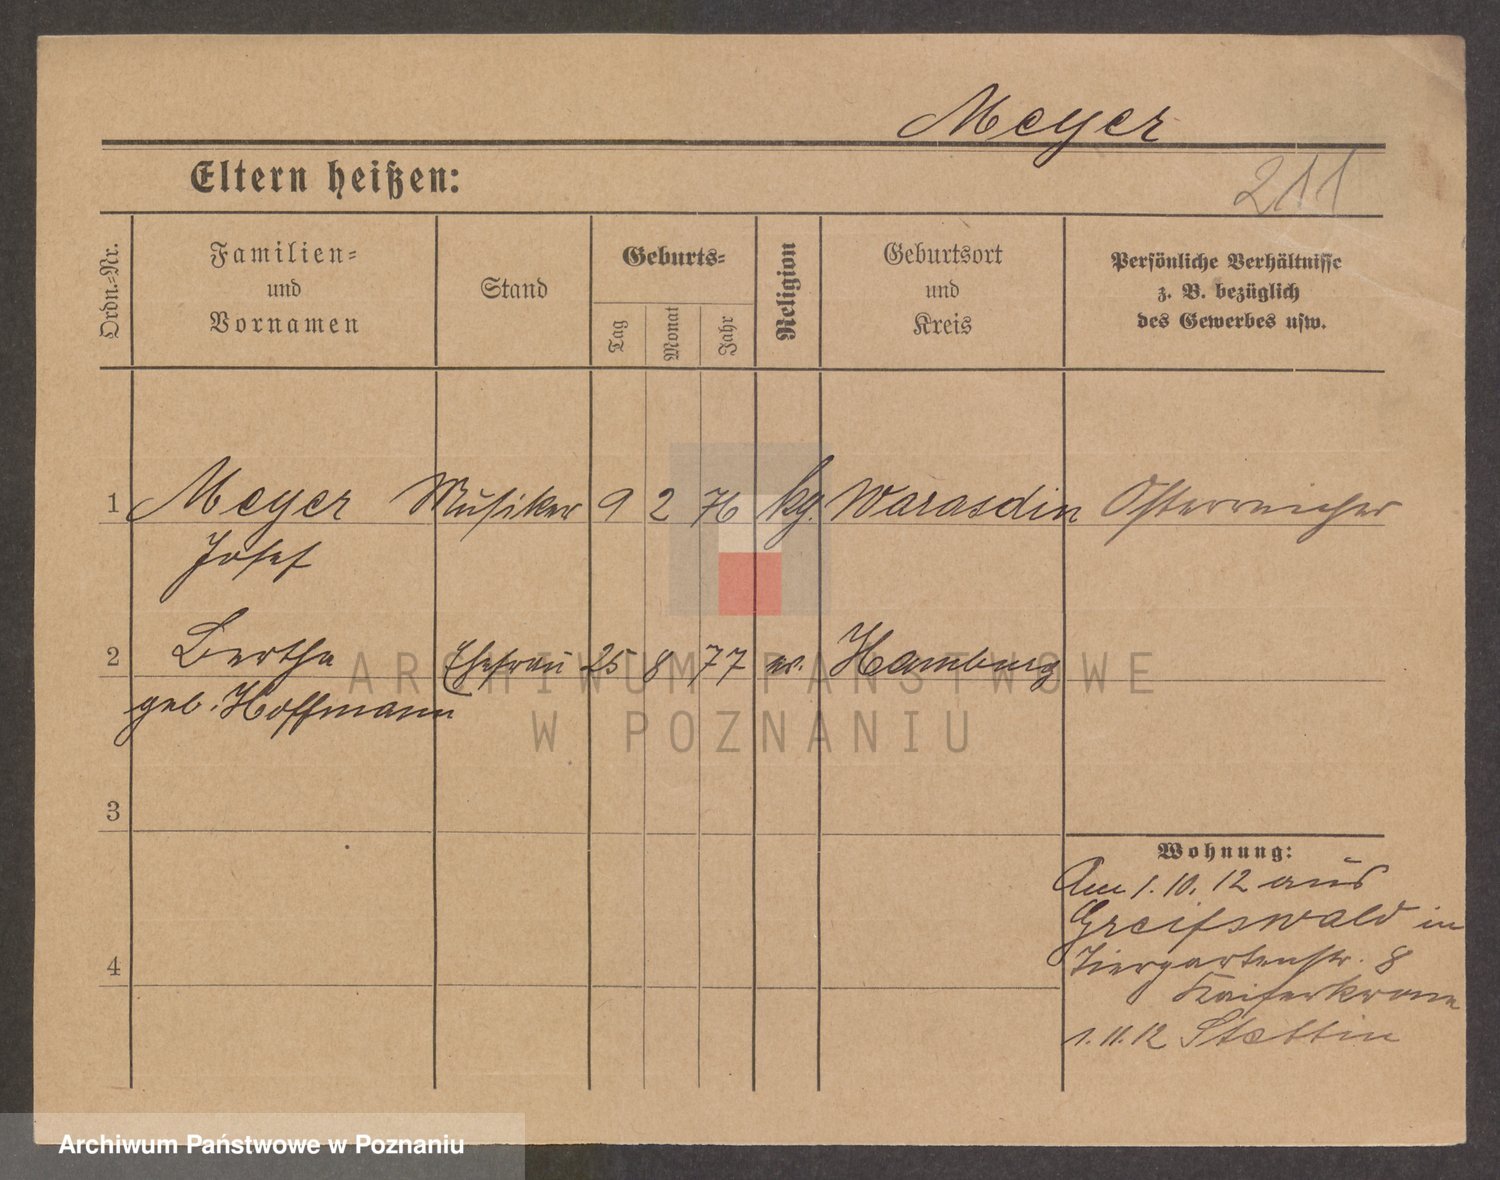 Meyer
Eltern heißen:
211
Ordn.-Nr.
Familien-
und
Vornamen
Stand
Geburts-
Tag
Monat
Jahr
Religion
Geburtsort
und
Kreis
Persönliche Verhältnisse
z. B. bezüglich
des Gewerbes usw.
1 Meyer Musiker 9 2 76 kg. Warasdin Österreicher
Josef
2 Bertha Ehefrau 25 8 77 ev. Hamburg
geb. Hoffmann
3
Wohnung:
Am 1.10.12 aus
Greifswald in
Tiergartenstr. 8
4
Kaiserkrone
1.11.12 Stettin
ARCHIWUM PAŃSTWOWE
W POZNANIU
Archiwum Państwowe w Poznaniu